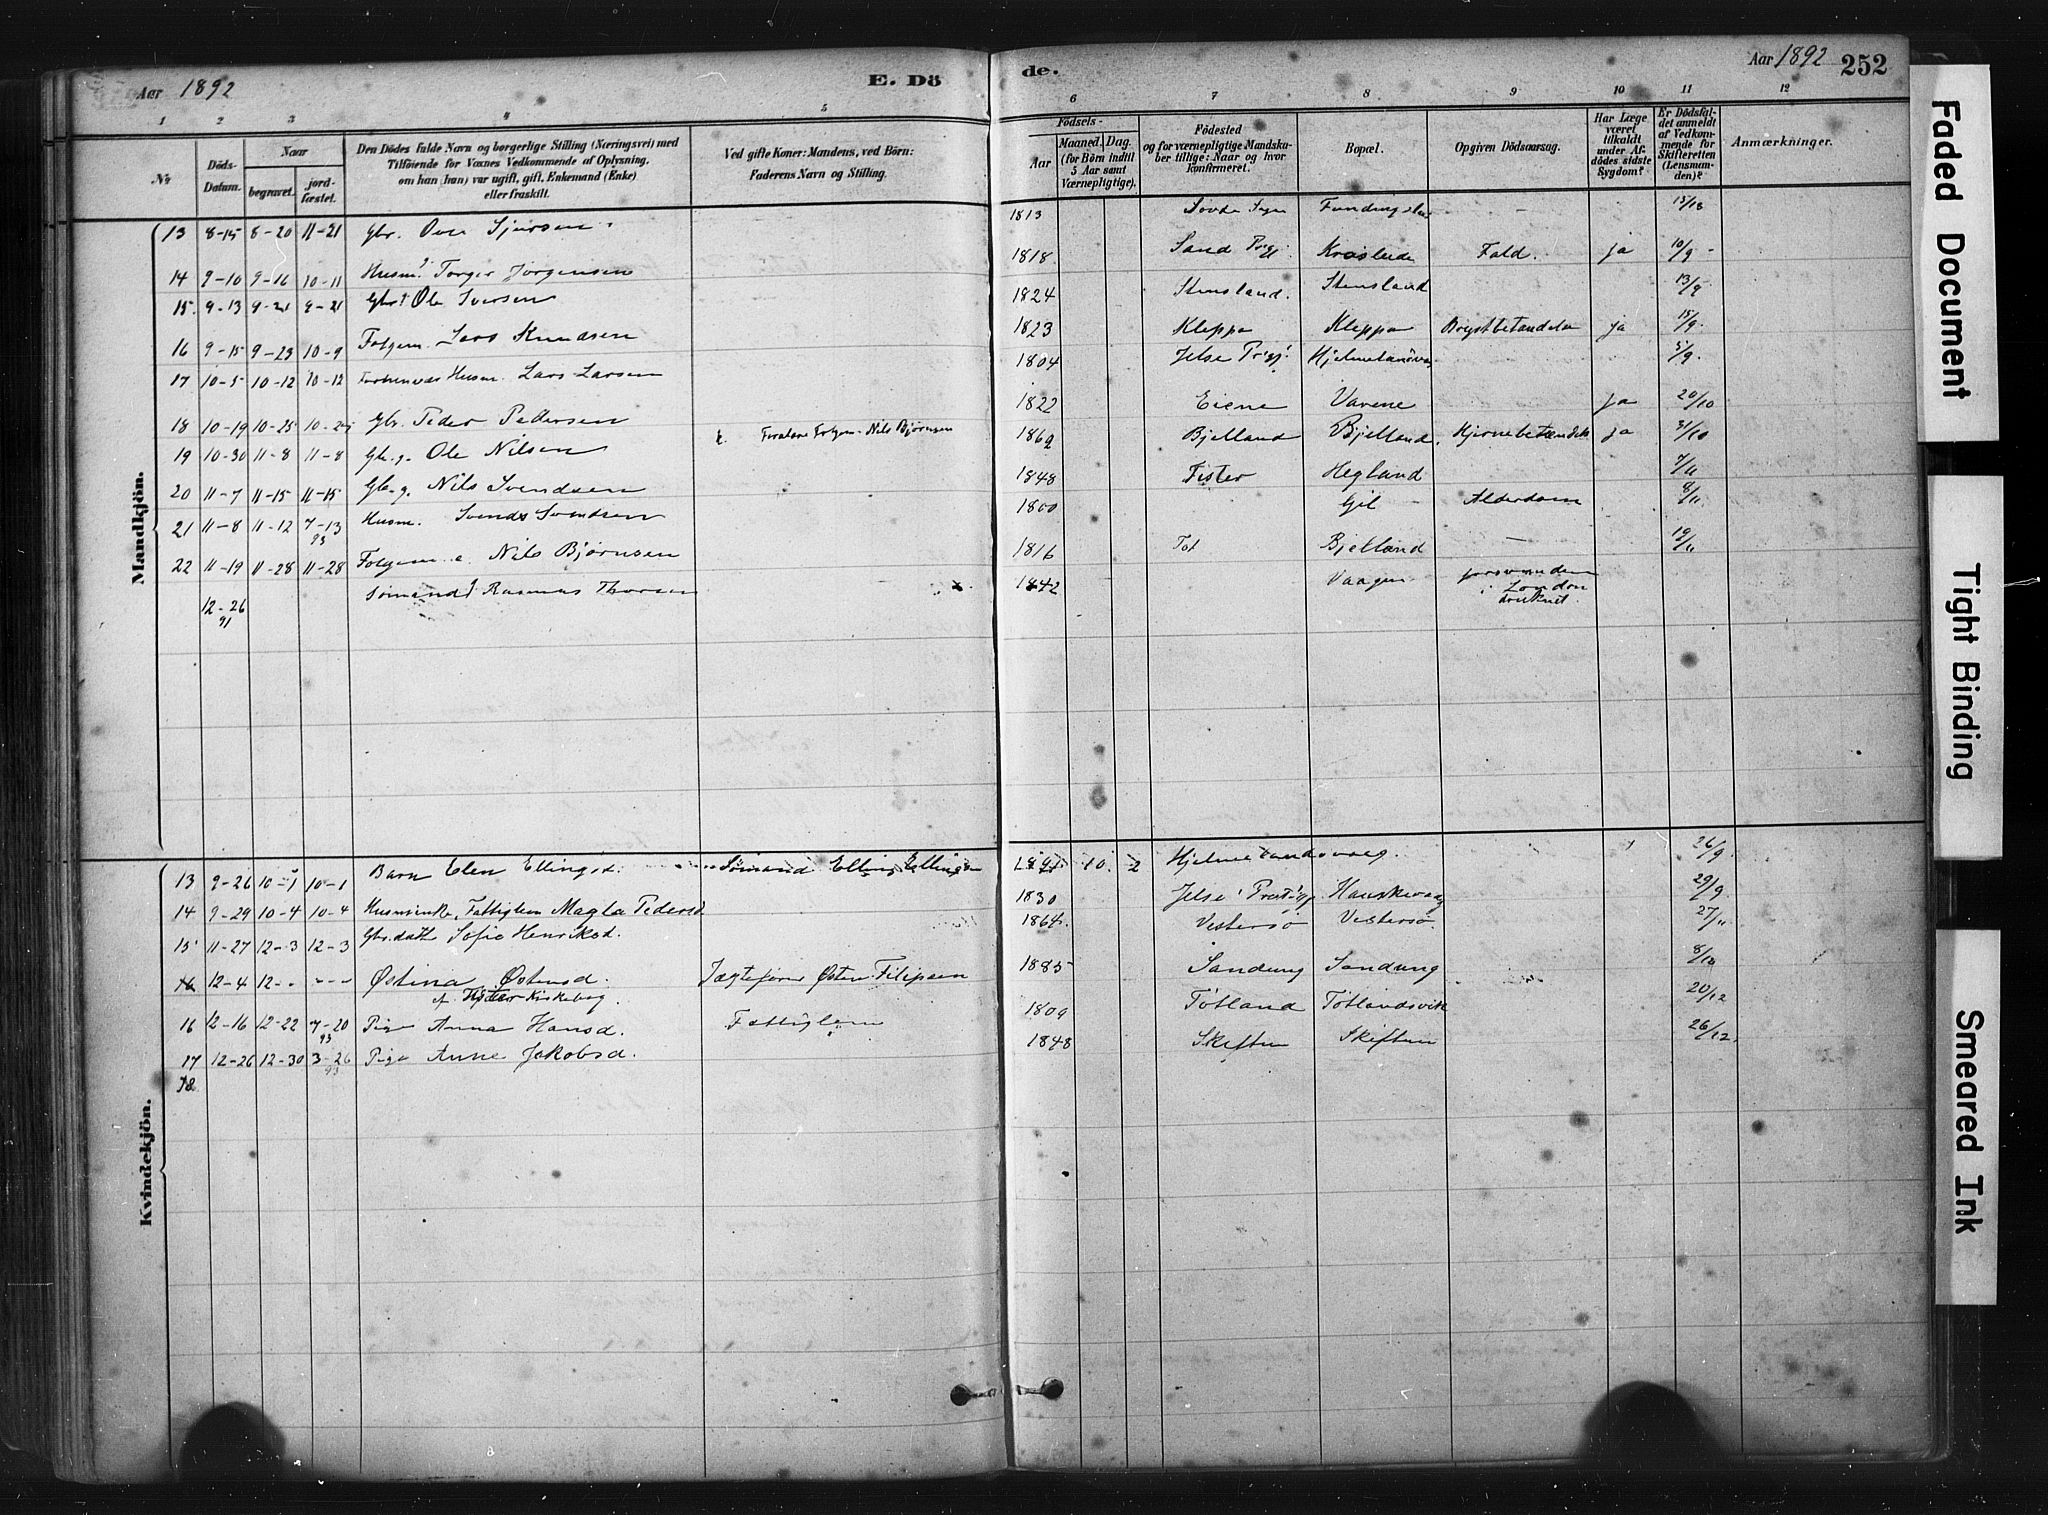 Aar 1892
E. Dö
de.
Aar 1892
252
1 2 3 4 5 6 7 8 9 10 11 12
No
Döds-Datum.
Naar
begravet.
jord-fæstet.
Den Dödes fulde Navn og borgerlige Stilling (Næringsvei) med
Tilföiende for Voxnes Vedkommende af Oplysning,
om han (hun) var ugift, gift, Enkemand (Enke)
eller fraskilt.
Ved gifte Koner: Mandens, ved Börn:
Faderens Navn og Stilling.
Födsels-
Aar
Maaned. Dag.
(for Börn indtil
5 Aar samt
Værnepligtige).
Födested
og for værnepligtige Mandska-
ber tillige: Naar og hvor
konfirmeret.
Bopæl.
Opgiven Dödsaarsag.
Har Læge
været
tilkaldt
under Af-
dödes sidste
Sygdom?
Er Dödsfal-
det anmeldt
af Vedkom-
mende for
Skifteretten
(Lensman-
den)?
Anmærkninger.
Mandkjön.
13 8-15 8-20 11-21 Gbr. Ove Sjursen 1813 —
14 9-10 9-16 10-11 Husm. Torger Jørgensen 1818 Sand Fald. ja 10/9
15 9-13 9-21 9-21 Gbr. Ole Iversen 1824 Stensland. Stensland 13/9
16 9-15 9-23 10-9 Folgem. Lars Knudsen 1823 Kleppa Kleppa Brystbetændelse ja 15/9
17 10-5 10-12 10-12 Husm. Lars Larsen 1804 Jelse 5/9
18 10-19 10-25 Gbr. Peder Pedersen 1822 Eiene Varene ja 20/10
19 10-30 11-8 11-8 Gbr. g. Ole Nilsen Nils Bjørnsen 1862 Bjelland Bjelland Hjernebetændelse ja 31/10
20 11-7 11-15 11-15 Gbr. g. Nils Svendsen 1848 Fister Hegland 7/11
21 11-8 11-12 7-13 93 Husm. Svend Svendsen 1800 Gil Alderdom 8/11
22 11-19 11-28 11-28 Folgem. Nils Bjørnsen 1816 Bjelland — 19/11
12-26 91 Sømand Rasmus Thorsen 1842 Vaagen forsvunden i London druknet.
Kvindekjön.
13 9-26 10-1 10-1 Barn Elen Ellingsd. Sømand Elling Ellingsen 1891 10 2 Hjelmelandsvaag. 26/9
14 9-29 10-4 10-4 Husmsenke, Fattiglem Magla Pedersd 1830 Jelse 29/9
15 11-27 12-3 12-3 Gbr.datt Sofie Henriksd. 1864 Vestersø Vestersø 27/11
16 12-4 12- - - - Østina Østensd. Jægtefører Østen Filipsen 1885 Sandung Sandung
af Fister Kirkebog.
16 12-16 12-22 7-20 93 Pige Anna Hansd. Fattiglem 1809 Tøtland Tøtlandsvik 20/12
17 12-26 12-30 3-26 93 Pige Anne Jakobsd. 1848 Skiftun Skiftun 26/12
18
Faded Document
Tight Binding
Smeared Ink